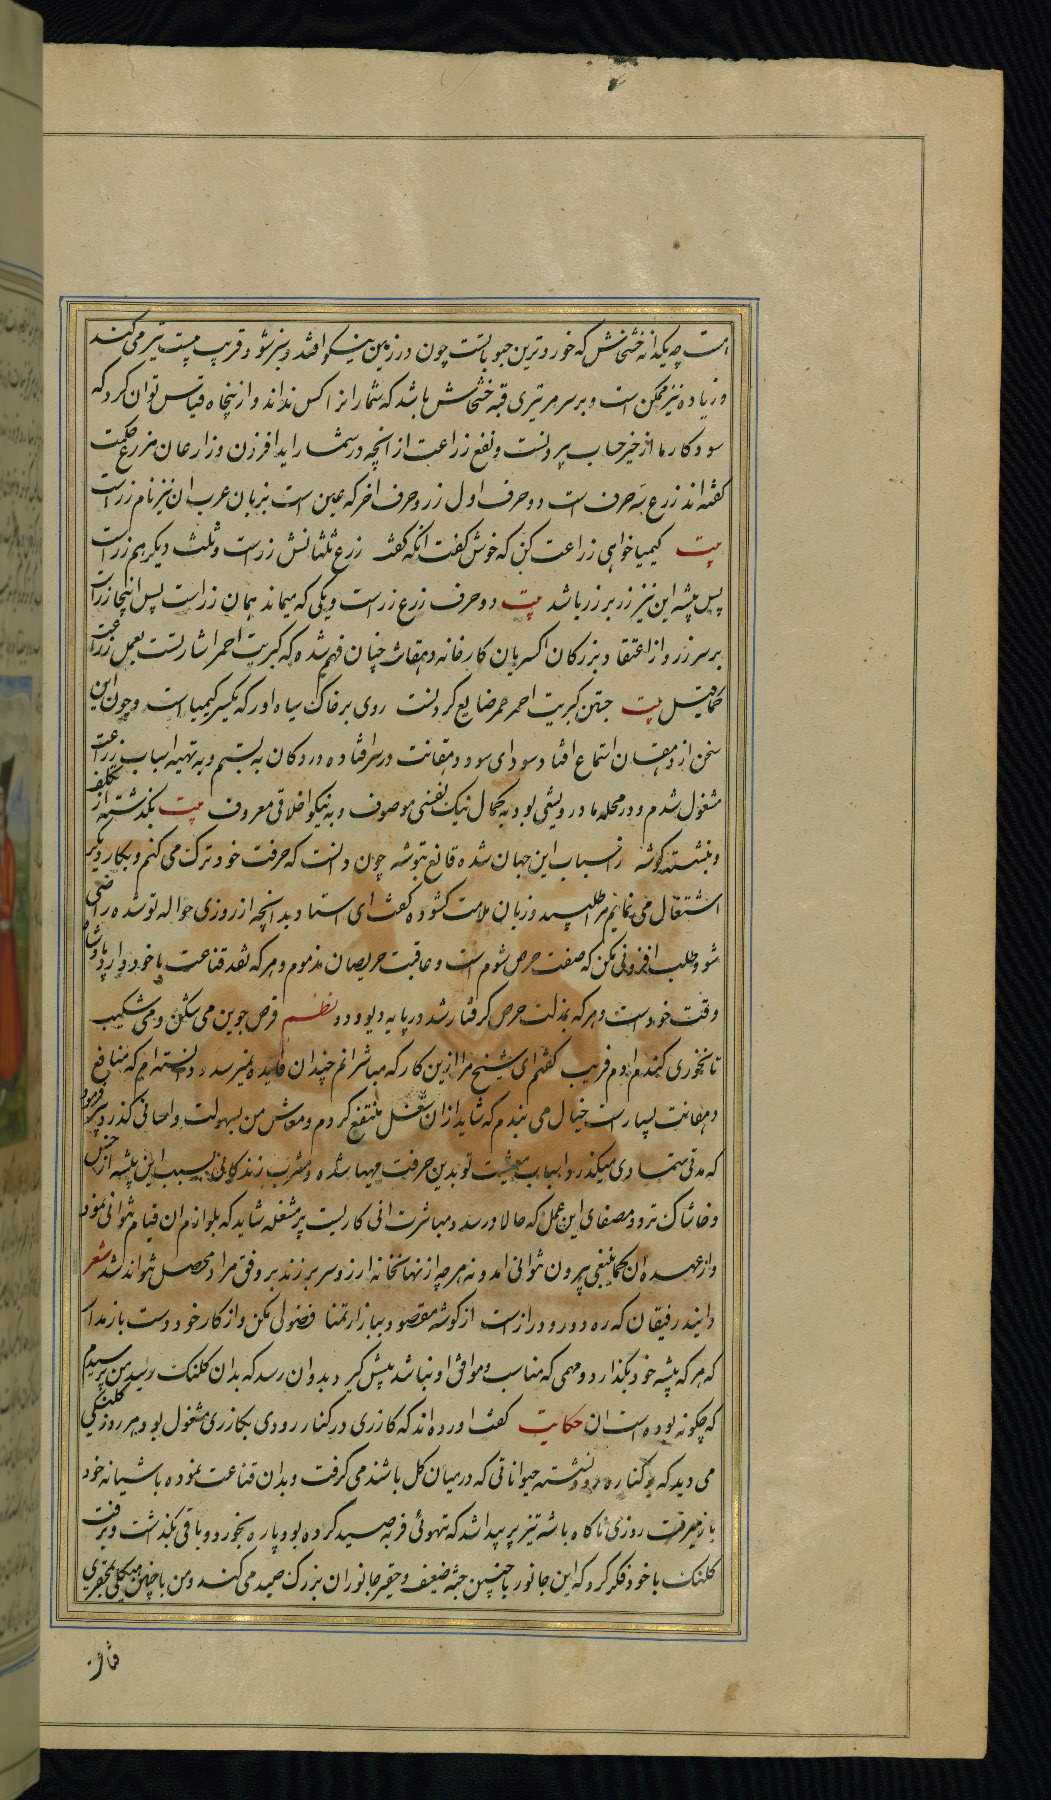 است چه یکدانه خشخاش که خوردترین حبوباتست چون در زمین نیکو افتد و سبز شود قریب بیست تیر می کند
و زیاده نیز ممکن است و بر سر هر تیری قبه خشخاش باشد که شمار انرا کس نداند و از ینجا قیاس توان کرد که
سود کار ما از خیز حساب بیرونست و نفع زراعت از انچه در شمار اید افزون و زارعان مزرع حکمت
گفته اند زرع سه حرف است دو حرف اول زر و حرف اخر که عین است بزبان عرب ان نیز نام زر است
بیت کیمیا خواهی زراعت کن که خوش گفت انکه گفت زرع ثلثانش زرست و ثلث دیگر هم زر است
پس پیشه این نیز زر بر زر باشد بیت دو حرف زرع زرست و یکی که میماند همان زر است پس اینجا زر است
بر سر زر و از اعتقاد بزرگان اکسریان کارخانه دهقانت چنان فهم شده که کبریت احمر اشارتست بعمل زراعت
کما قیل بیت جستن کبریت احمر عمر ضایع کردنست روی بر خاک سیاه اور که یکسر کیمیاست و چون این
سخن از دهقان استماع افتاد سودای سود دهقانت در سر افتاده در دکان به بستم و به تهیه اسباب زراعت
مشغول شدم و در محله ما درویشی بود به کمال نیک نفسی موصوف و به نیکو اخلاقی معروف بیت بگذشته از تکلف
و بنشسته گوشه ز اسباب این جهان شده قانع بتوشه چون دانست که حرفت خود ترک می کنم و بکار دیگر
اشتغال می نمایم مرا طلبید و زبان ملامت گشوده گفت ای استاد بدانچه از روزی حواله تو شده راضی
شو و طلب افزونی مکن که صفت حرص شوم است و عاقبت حریصان مذموم و هر که نقد قناعت با خود دارد پادشاه
وقت خودست و هر که بمذلت حرص گرفتار شد در پایه دیو و دد نظم قرص جوین می شکن و می شکیب
تا نخوری گندم ادم فریب گفتم ای شیخ مرا ازین کار که مباشر انم چندان فایده نمیرسد و دانسته ام که منافع
دهقانت بسیارست خیال می بندم که شاید از ان شغل منتفع گردم و معاش من بسهولت و اسانی گذرد پیر فرمود
که مدتی متمادی میگذرد اسباب معیشت تو بدین حرفت مهیا شده و مشرب زندگانی بسبب این پیشه از خس
و خاشاک تردد مصفا ای این عمل که حالا در صدد مباشرت انی کاریست پر مشغله شاید که بلوازم ان قیام نتوانی نمود
و از عهده ان کما ینبغی بیرون نتوانی امد و نه هر چه از نهانخانه ارزو سر بر زند بر وفق مراد محصل تواند شد شعر
دانند رفیقان که ره دور و درازست از گوشه مقصود ببازار تمنا فضولی مکن و از کار خود دست باز مدار
که هر که پیشه خود بگذارد و مهمی که مناسب و موافق او نباشد پیش گیرد بدو ان رسد که بدان کلنک رسید من پرسیدم
که چگونه بوده است ان حکایت گفت اورده اند که گازری در کنار رودی بگازری مشغول بود هر روز کلنکی
می دید که بر کناره رود نشسته حیواناتی که در میان گل باشند می گرفت و بدان قناعت نموده باشیانه خود
باز میرفت روزی ناگاه باشه تیز پر پیدا شد که تیهوئی فربه صید کرده بود پاره بخورد و باقی بگذاشت و برفت
کلنک با خود فکر کرد که این جانور با چنین جثه ضعیف و حقیر جانوران بزرگ صید می کند و من با چنین هیکلی بمحقری